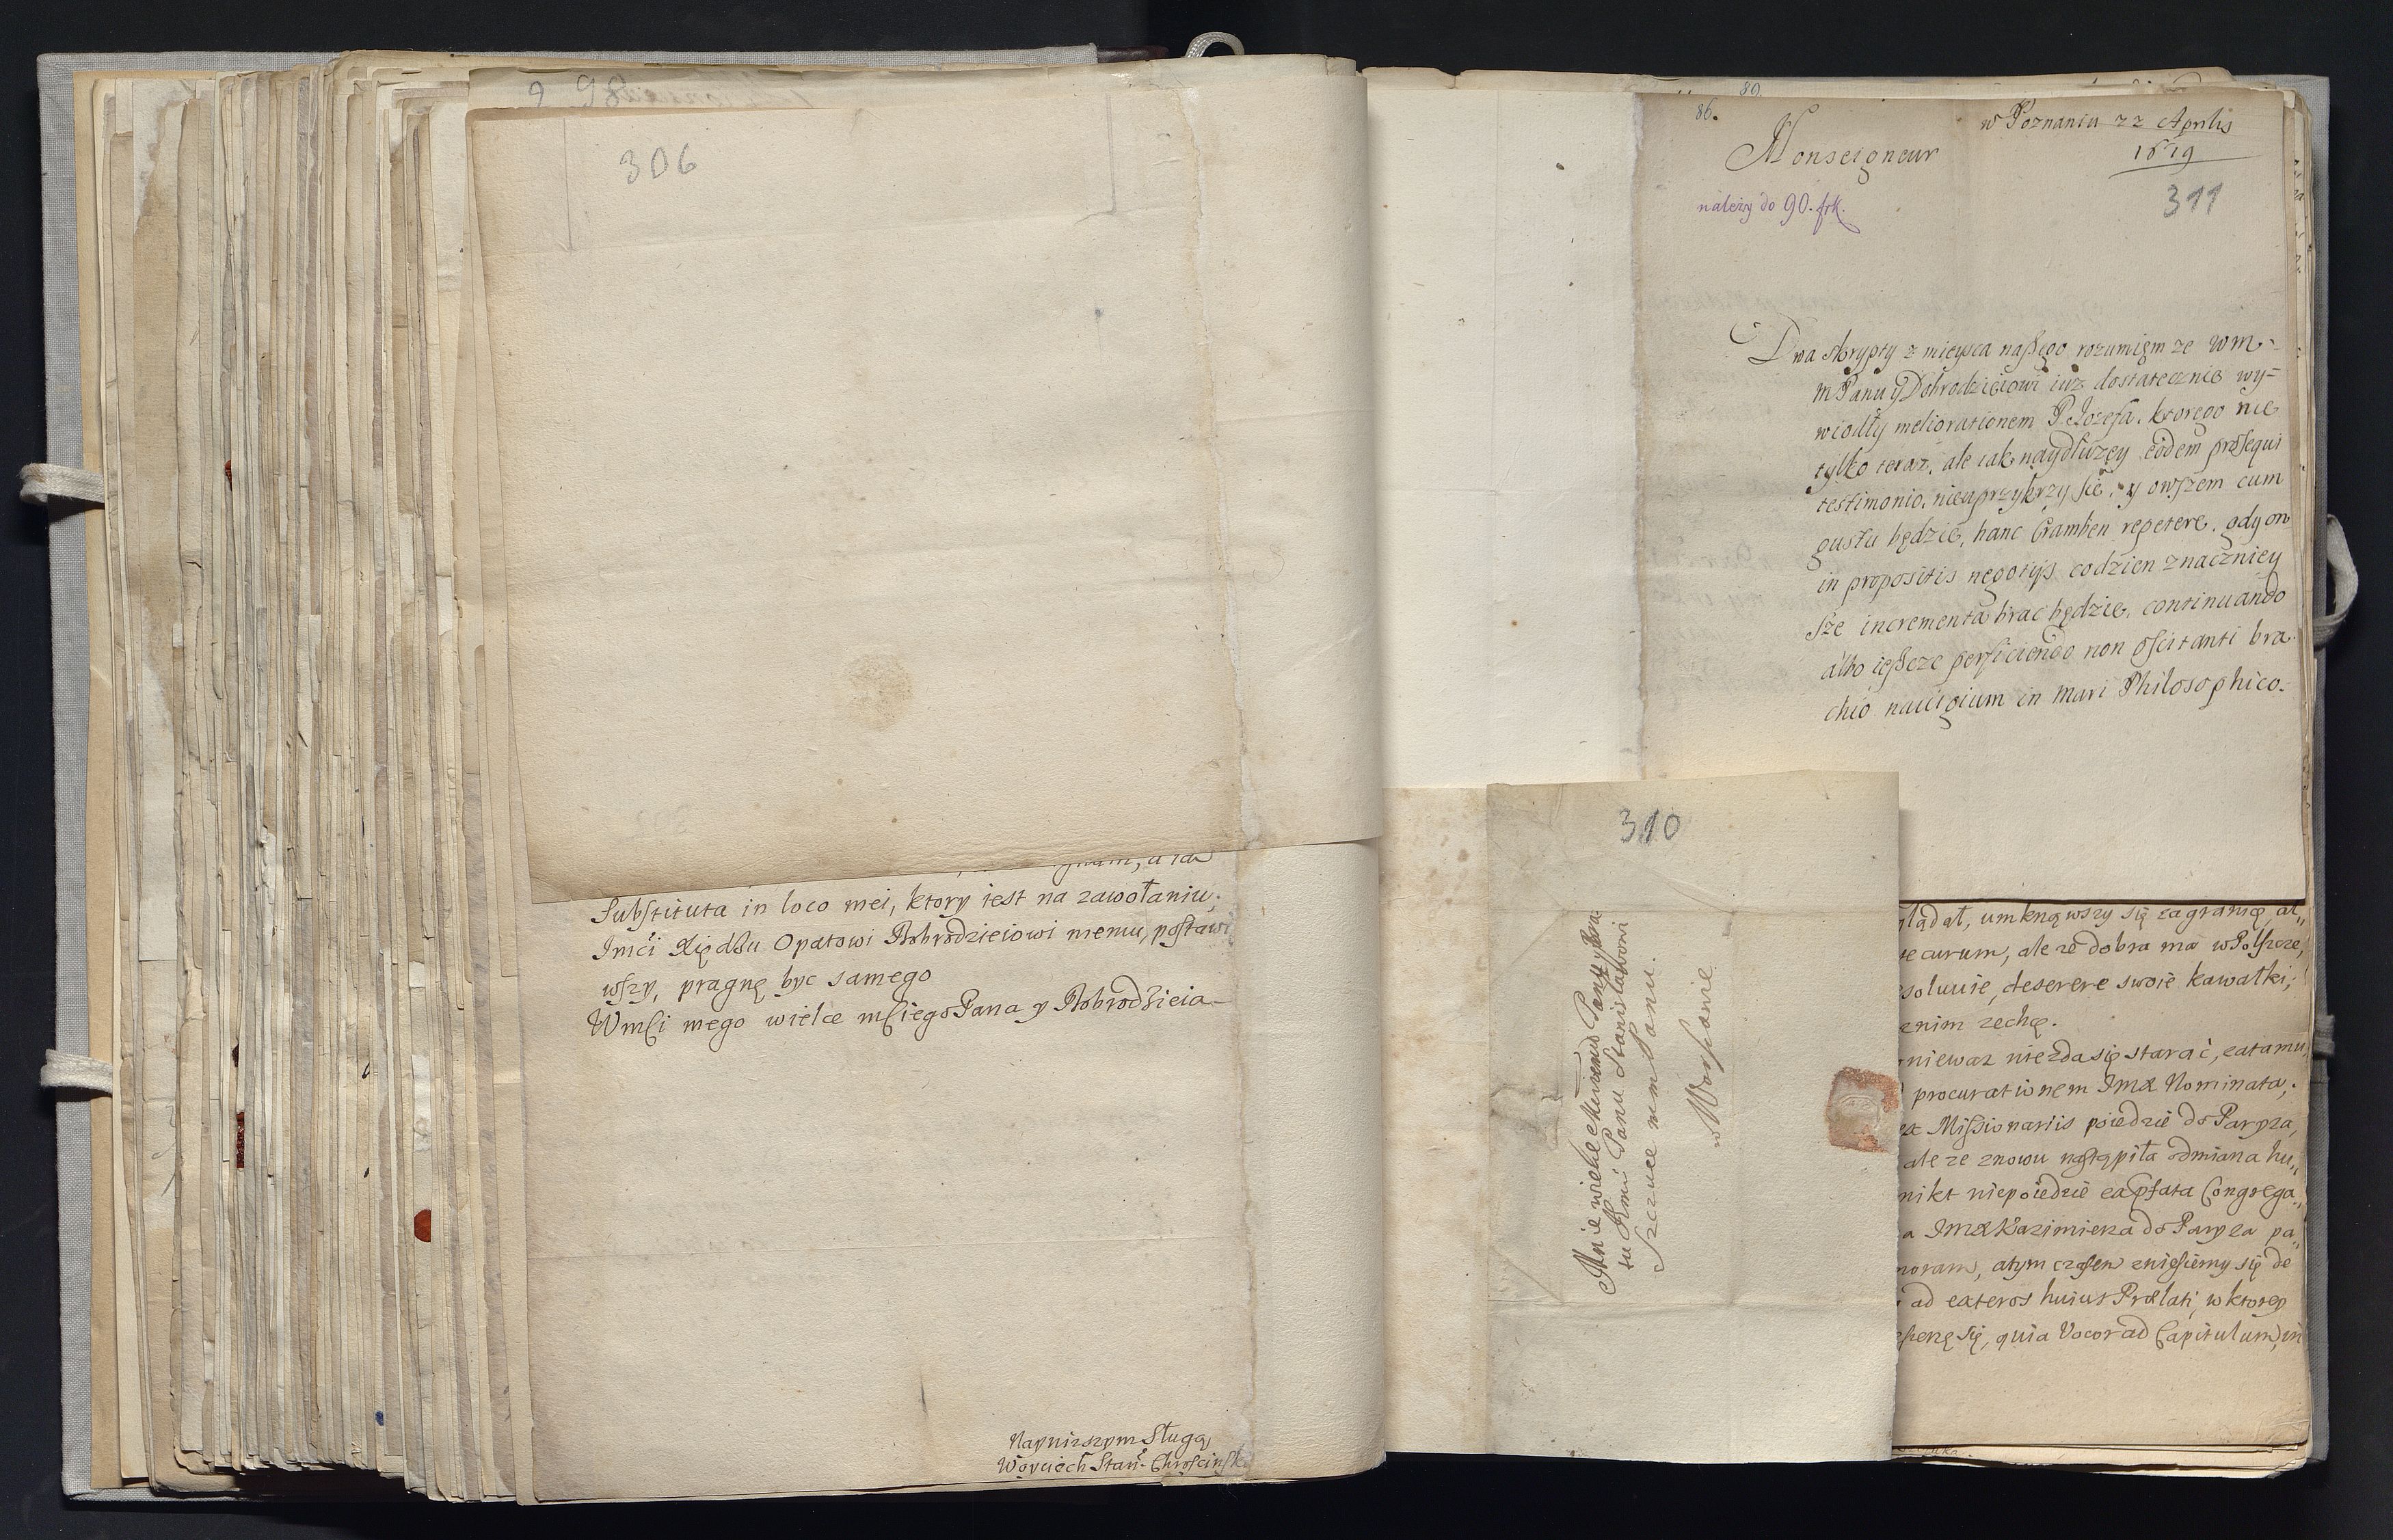 306
Substituta in loco mei, ktory iest na zawołaniu,
Imći Xiędzu Opatowi Dobrodzieiowi memu, postawi
wszy, pragnę byc samego
Wmści mego wielce mściego Pana y Dobrodzieia
Nayniszszym Sługą
Woyciech Stan: Chroscinsk
89.
86.
w Poznaniu 22 Aprilis
1679
Monseigneur
311
należy do 90. frk.
Dwa skrypty z mieysca naszego rozumięm ze Wm
m Panu y Dobrodzieiowi iuz dostatecznie wy=
wiodły meliorationem P. Jozefa. ktorego nie
tylko teraz, ale iak naydłuzey eodem prosequi
testimonio. nieuprzykrzy sie, y owszem cum
gustu będzie, hanc Cramben repetere. gdy on
in propositis negotijs codzien znacznięy
sze incrementa brac będzie, continuando
albo ieszcze perficiendo non oscitanti bra
chio nauigium in mari Philosophico.
310
Mnie wielce Mciwemu Panu y Bra
tu Jmci Panu Stanisławowi
Szczuce mm Panu.
w Warszawie
glądał, umknąwszy się zagranicę, al„
securum, ale ze dobra ma w Polszcze,
soluuie, deserere swoie kawałki;
znim zechce.
niewaz niezda się starać, ea tamu„
procurationem JmX Nominata,
ex Missionariis poiedzie do Paryza,
ale ze znowu nastąpiła odmiana hu„
nikt niepoiedzie ea pfata Congrega„
a JmX Kazimierza do Paryza pa„
moram, atym czasem zniesiemy się de
ad cæteros huius Prælati, w ktorey
się, quia Vocor ad Capitulum, in